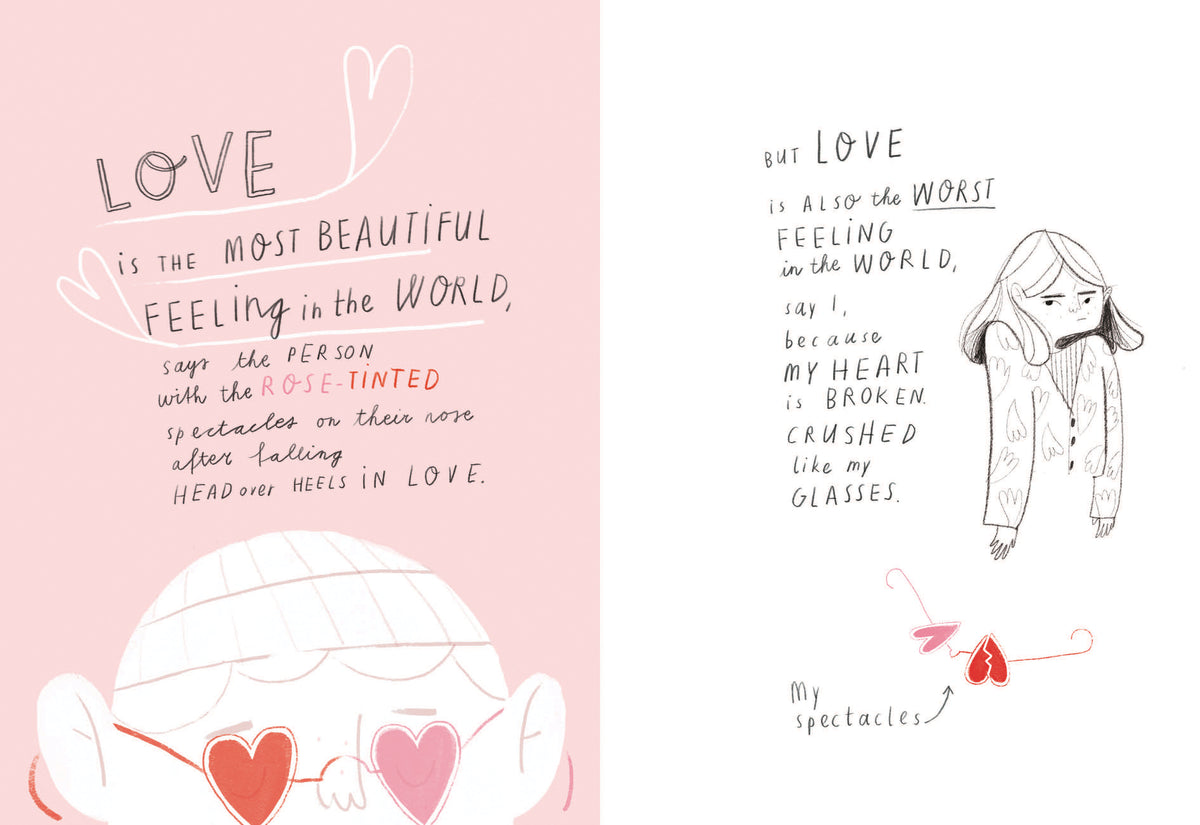 LOVE
is THE MOST BEAUTiFUL
FEELing in the WORLD,
says the PERSON
with the ROSE-TINTED
spectacles on their nose
after falling
HEAD over HEELS iN LOVE.
BUT LOVE
is ALSO the WORST
FEELiNG
in the WORLD,
say I,
because
MY HEART
is BROKEN.
CRUSHED
like my
GLASSES.
My
spectacles